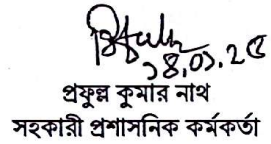 ১৪.০১.২৫
প্রফুল্ল কুমার নাথ
সহকারী প্রশাসনিক কর্মকর্তা